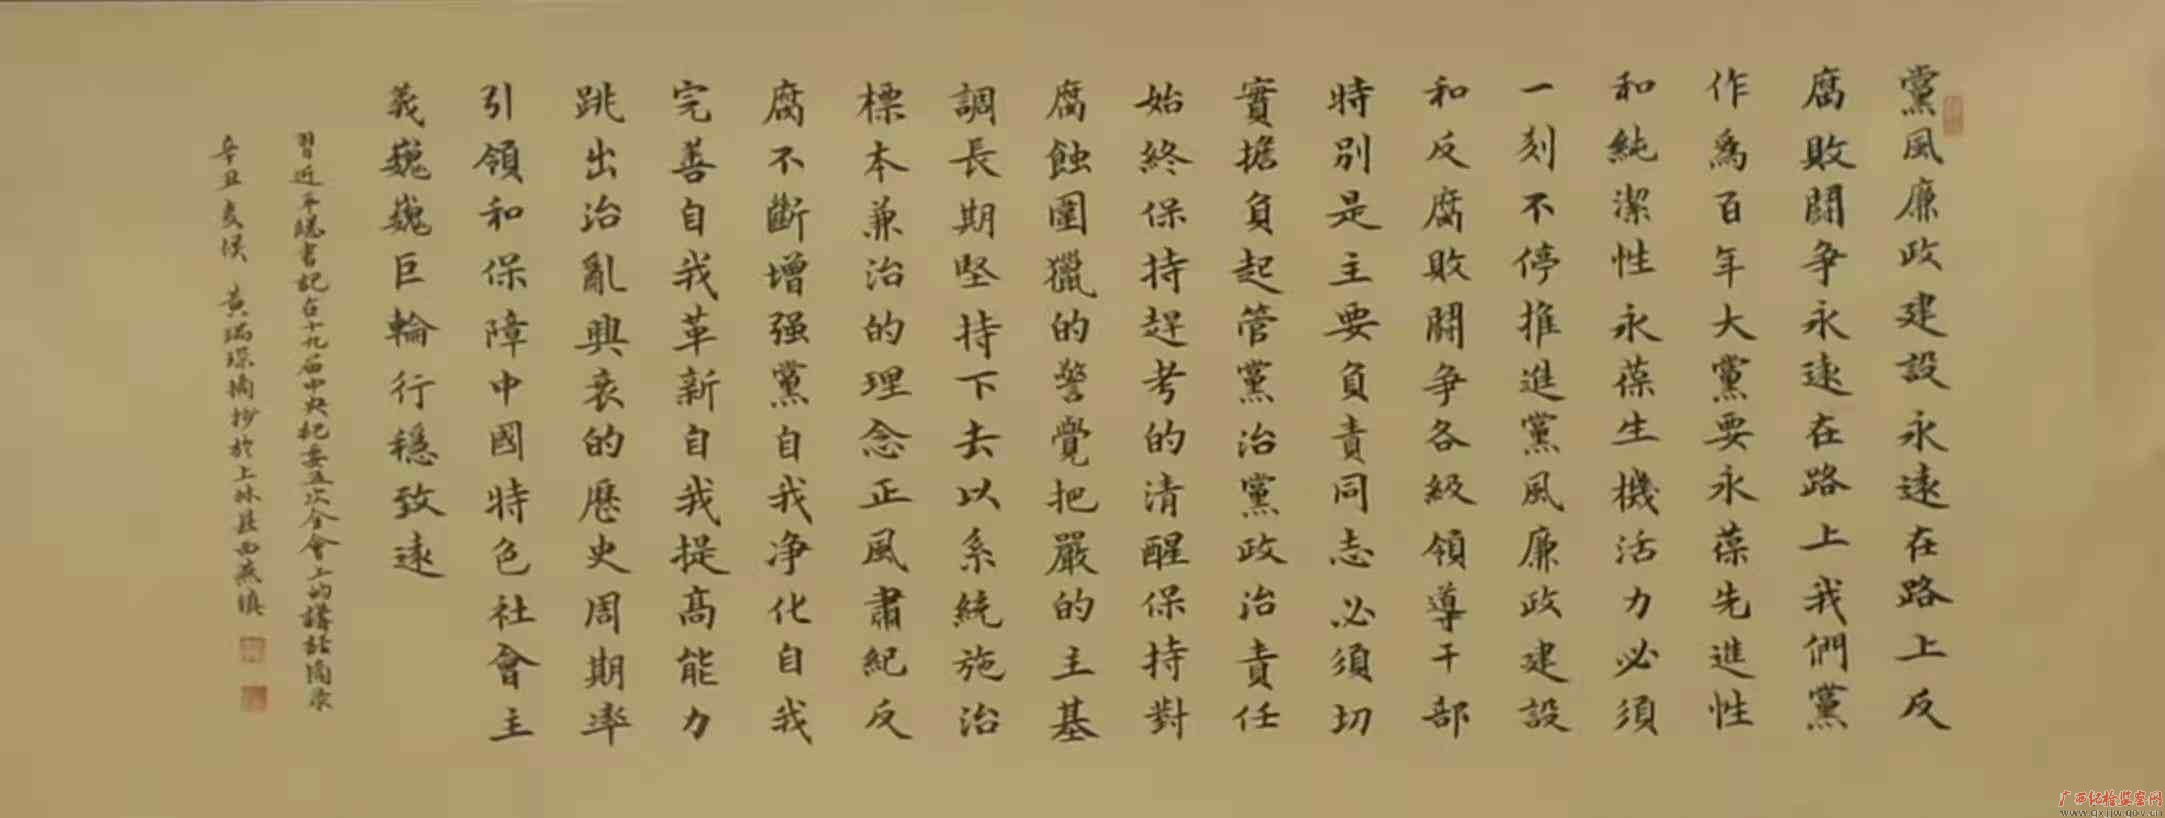 黨風廉政建設永遠在路上反
腐敗鬪争永遠在路上我們黨
作爲百年大黨要永葆先進性
和純潔性永葆生機活力必須
一刻不停推進黨風廉政建設
和反腐敗鬪争各級領導干部
特别是主要負責同志必須切
實擔負起管黨治黨政治責任
始終保持趕考的清醒保持對
腐蝕圍獵的警覺把嚴的主基
調長期堅持下去以系統施治
標本兼治的理念正風肅紀反
腐不斷增强黨自我净化自我
完善自我革新自我提高能力
跳出治亂興衰的歷史周期率
引領和保障中國特色社會主
義巍巍巨輪行穩致遠
習近平總書記在十九届中央紀委五次全會上的講話摘录
辛丑夏侯 黄瑞琛摘抄於上林县西燕镇
广西纪检监察网
www.gxjjw.gov.cn